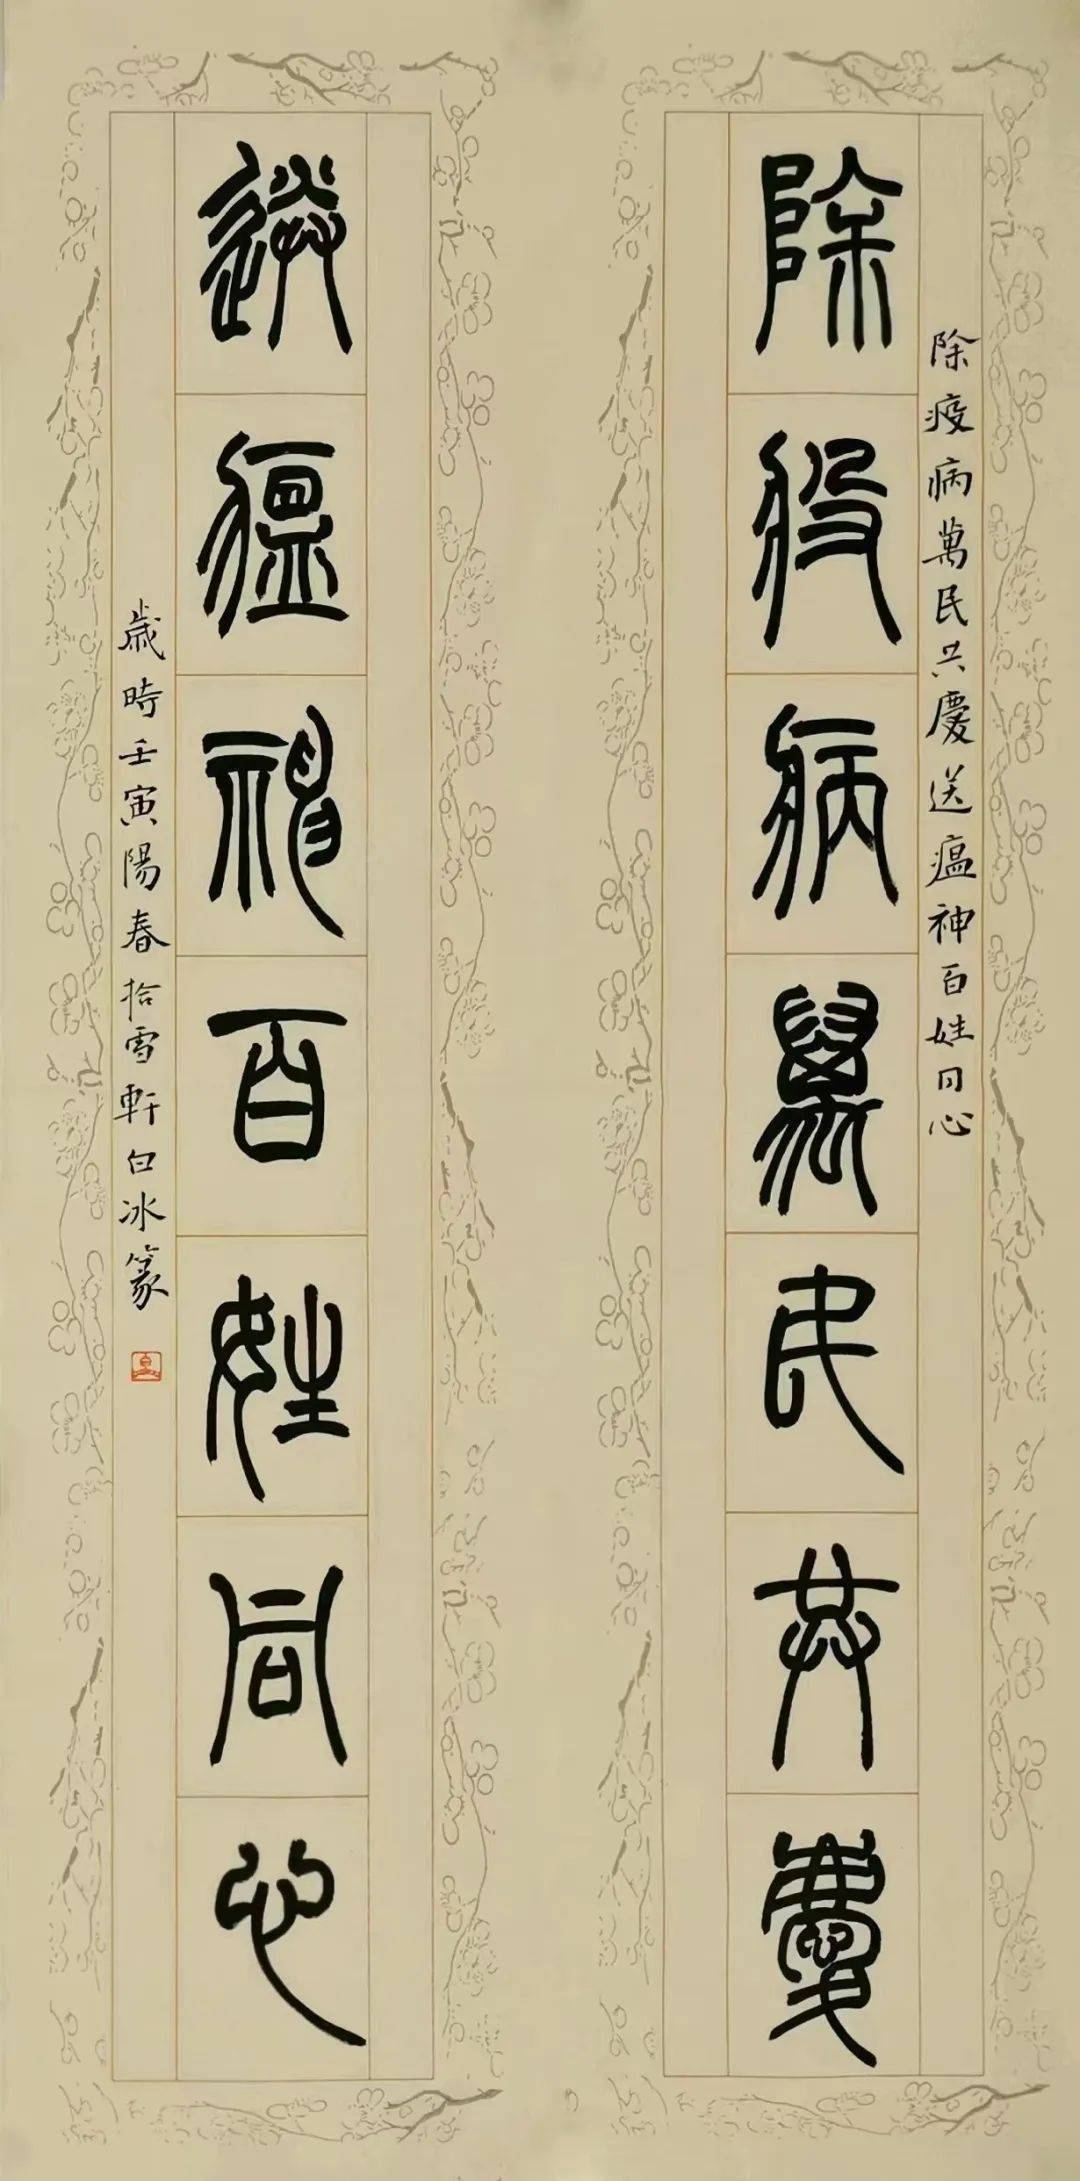 除疫病萬民共慶送瘟神百姓同心
除疫病萬民共慶
送瘟神百姓同心
歲時壬寅陽春拾雪軒白冰篆